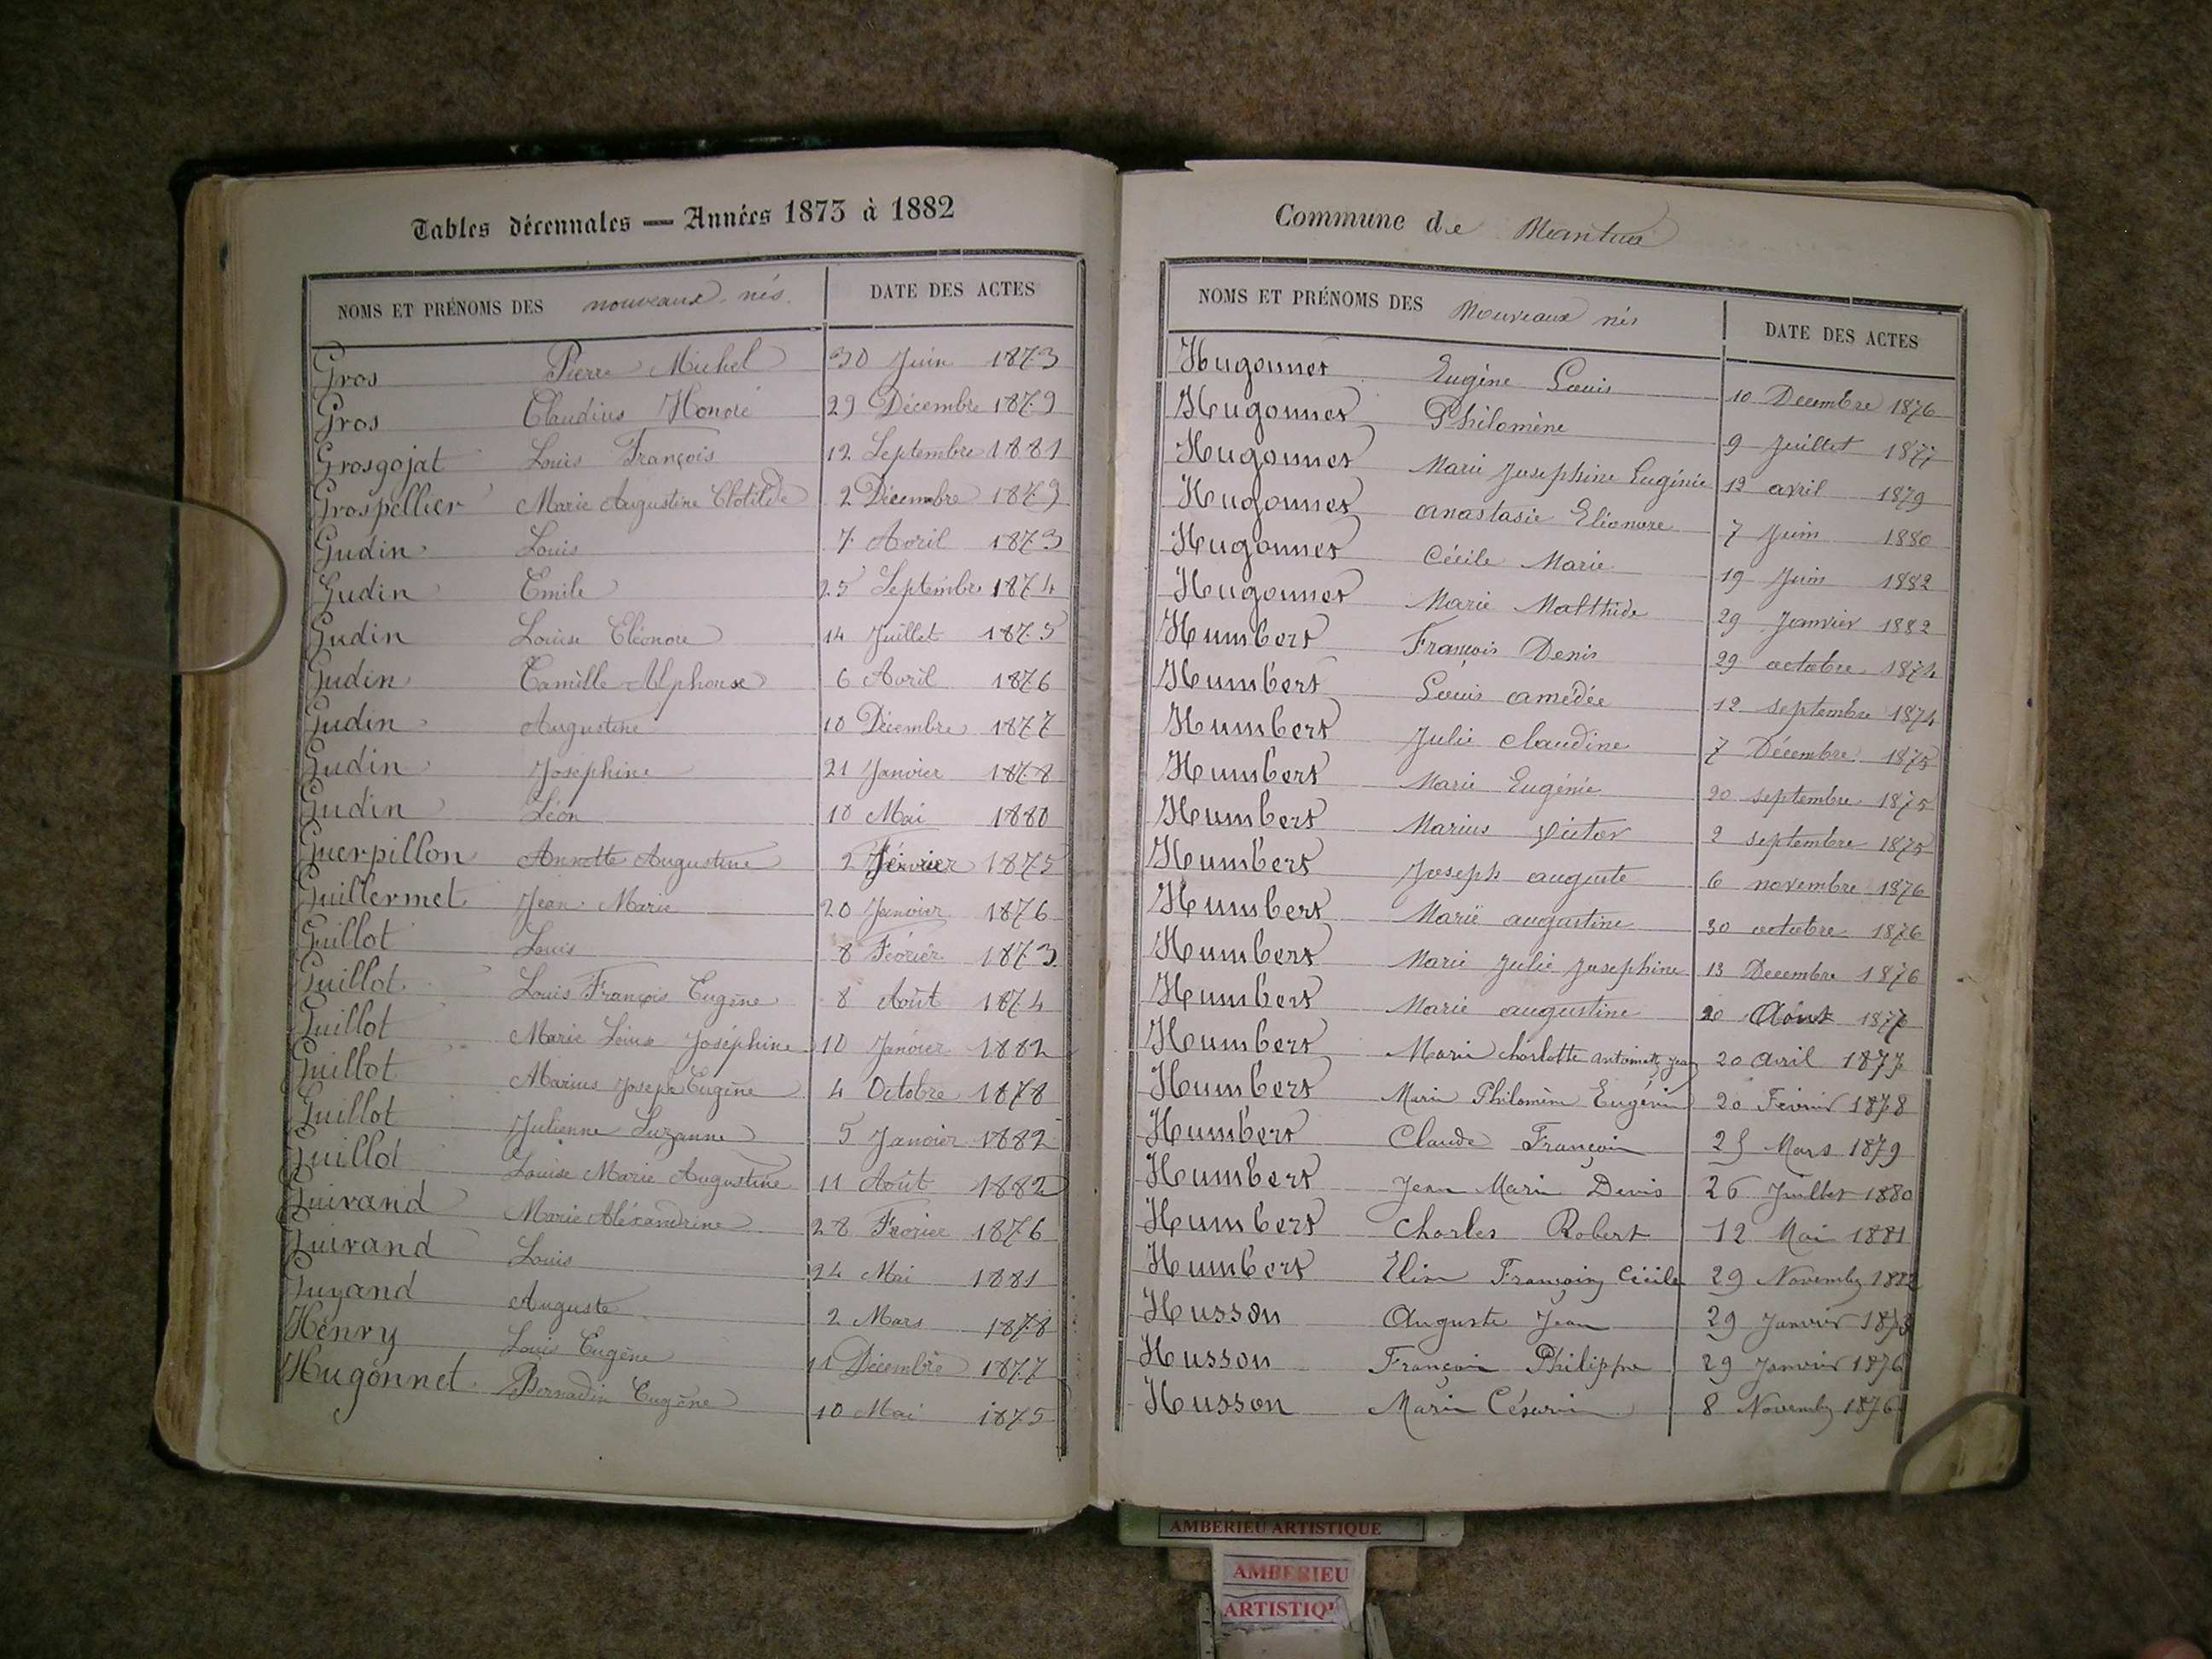 Tables décennales — Années 1873 à 1882
NOMS ET PRÉNOMS DES nouveaux-nés. DATE DES ACTES
Gros Pierre Michel 30 Juin 1873
Gros Claudius Honoré 29 Décembre 1879
Grosgojat Louis François 12 Septembre 1881
Grospellier Marie Augustine Clotilde 2 Décembre 1879
Gudin Louis 7 Avril 1873
Gudin Emile 25 Septembre 1874
Gudin Louise Eléonore 14 Juillet 1875
Gudin Camille Alphonse 6 Avril 1876
Gudin Augustine 10 Décembre 1877
Gudin Joséphine 21 Janvier 1878
Gudin Léon 10 Mai 1880
Guerpillon Annette Augustine 2 Février 1875
Guillermet Jean Marie 20 Janvier 1876
Guillot Louis 8 Février 1873
Guillot Louis François Eugène 8 Août 1874
Guillot Marie Joséphine 10 Janvier 1882
Guillot Marius Joseph Eugène 4 Octobre 1878
Guillot Julienne Suzanne 5 Janvier 1882
Guillot Louise Marie Augustine 11 Août 1882
Guirand Marie Aléxandrine 28 Février 1876
Guirand Louis 24 Mai 1881
Guyand Auguste 2 Mars 1878
Henry Louis Eugène 11 Décembre 1877
Hugonnet Bernadin Eugène 10 Mai 1875
Commune de Mantua
NOMS ET PRÉNOMS DES Nouveaux nés DATE DES ACTES
Hugonnet Eugène Louis 10 Decembre 1876
Hugonnet Philomène 9 Juillet 1877
Hugonnet Marie Josephine Eugénie 12 avril 1879
Hugonnet anastasie Eléonore 7 Juin 1880
Hugonnet Cécile Marie 19 Juin 1882
Hugonnet Marie Malthide 29 Janvier 1882
Humbert François Denis 29 octobre 1874
Humbert Louis amédée 12 septembre 1874
Humbert Julie Claudine 7 Décembre 1875
Humbert Marie Eugénie 20 septembre 1875
Humbert Marius Victor 2 septembre 1875
Humbert Joseph auguste 6 novembre 1876
Humbert Marie augustine 30 octobre 1876
Humbert Marie Julie Josephine 13 Decembre 1876
Humbert Marie augustine 20 Août 1877
Humbert Marie charlotte antoinette 20 avril 1877
Humbert Marie Philomène Eugénie 20 Février 1878
Humbert Claude François 25 Mars 1879
Humbert Jean Marie Denis 26 Juillet 1880
Humbert Charles Robert 12 Mai 1881
Humbert Elisa Françoise Cécile 29 Novembre 1882
Husson Auguste Jean 29 Janvier 1873
Husson François Philippe 29 Janvier 1876
Husson Marie Césarine 8 Novembre 1876
AMBERIEU ARTISTIQUE
AMBERIEU
ARTISTIQU